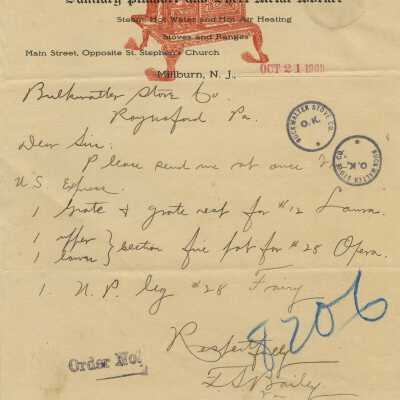 Sanitary Plumber and Sheet Metal Worker
Steam, Hot Water and Hot Air Heating
Stoves and Ranges
Main Street, Opposite St. Stephen's Church
Millburn, N. J.,
OCT 21 1909
Buckwalter Stove Co.
Royersford Pa.
Dear Sirs:
Please send me at once
U.S. Express.
1 Grate & grate rest for #12 Laura.
1 upper
1 lower } section fire pot for #28 Opera.
1. N.P. leg #28 Fairy
Respectfully
L S Bailey
8206
Order No.
BUCKWALTER STOVE CO.
O.K.
BUCKWALTER STOVE CO.
O.K.